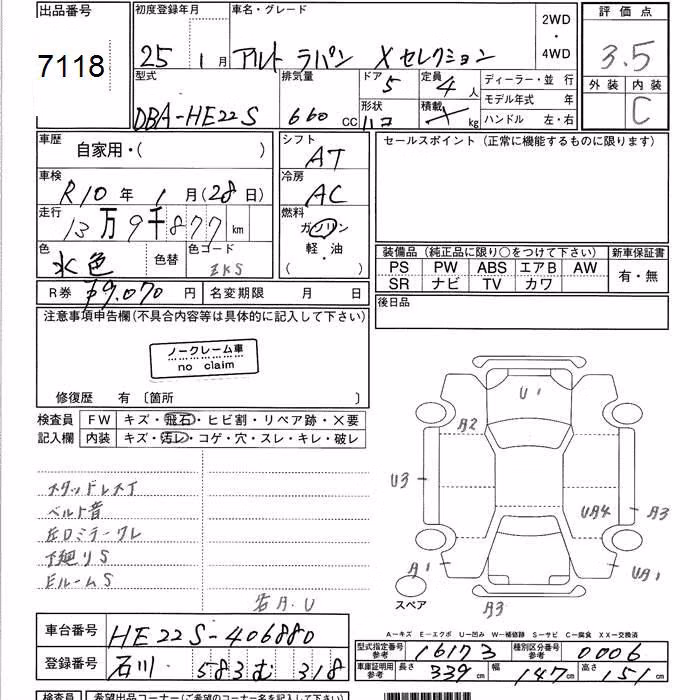 出品番号
7118
初度登録年月
25 1月
車名・グレード
アルト ラパン Xセレクション
2WD
・
4WD
評価点
3.5
外装 内装
C
型式
DBA-HE22S
排気量
660 CC
ドア
5
定員
4人
形状
ハコ
積載
kg
ディーラー・並 行
モデル年式 年
ハンドル 左・右
車歴
自家用・( )
シフト
AT
車検
R10年 1月(28日)
冷房
AC
走行
13万9千877 km
燃料
ガソリン
軽・油
( )
色
水色 色替
色コード
ZKS
R券 ¥9.070円
名変期限 月 日
セールスポイント (正常に機能するものに限ります)
装備品 (純正品に限り○をつけて下さい)
新車保証書
PS PW ABS エアB AW
SR ナビ TV カワ
有・無
後日品
注意事項申告欄(不具合内容等は具体的に記入して下さい)
ノークレーム車
no claim
修復歴 有 〔箇所 〕
検査員
記入欄
FW キズ・飛石・ヒビ割・リペア跡・×要
内装 キズ・汚レ・コゲ・穴・スレ・キレ・破レ
スタッドレスイ
ベルト音
左ロミラーワレ
下廻りS
EルームS
若A.U
U1
A2
U3
UA4
A3
A1
UA1
A3
スペア
A-キズ E-エクボ U-凹み W-補修跡 S-サビ C-腐食 XX-交換済
車台番号 HE22S-406880
登録番号 石川 583 む 318
型式指定番号
参考
16173
種別区分番号
参考
0006
車庫証明用
参考
長さ 339cm
幅 147cm
高さ 151cm
検査員
希望出品コーナー(ご希望のコーナー名を記入して下さい)